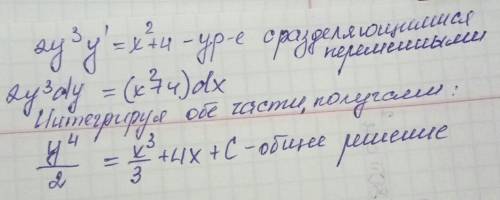 2y³y' = x²+4 - ур-е с разделяющимися переменными
2y³dy = (x²+4)dx
Интегрируя обе части, получаем:
y⁴/2 = x³/3 + 4x + C - общее решение